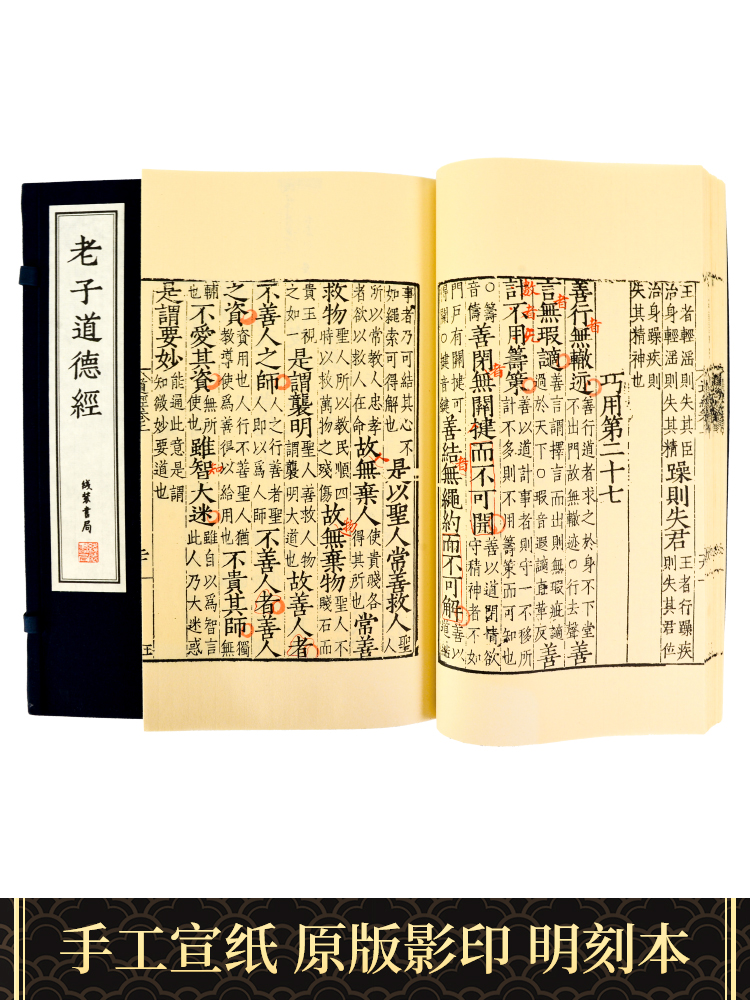 老子道德經
线装書局
王者輕淫則失其臣
治身輕淫則失其精
躁則失君
王者行躁疾
則失其君位
治身躁疾則
失其精神也
巧用第二十七
善行無轍迹
善行道者求之於身不下堂
不出門故無轍迹○行去聲
善
言無瑕讁
善言謂擇言而出則無瑕疵讁
過於天下○瑕音遐讁直革反
善
計不用籌策
善以道計事者則守一不移所
計不多則不用籌策而可知也
○籌
音儔
善閉無關揵而不可開
善以道閉情欲
守精神者不如
門戶有關揵可
得開○揵音鍵
善結無繩約而不可解
善以
道結
事者乃可結其心不
如繩索可得解也
是以聖人常善救人
聖
人
所以常教人忠孝
者欲以救人性命
故無棄人
使貴賤各
得其所也
常善
救物
聖人所以教民順四
時以救萬物之殘傷
故無棄物
聖人不
賤石而
貴玉視
之如一
是謂襲明
聖人善救人物
是謂襲明大道也
故善人者
不善人之師
人之行善者聖
人即以爲人師
不善人者善人
之資
資用也人行不善聖人猶
教導使爲善得以給用也
不貴其師
獨
無
輔
也
不愛其資
無所
使也
雖智大迷
雖自以爲智言
此人乃大迷惑
是謂要妙
能通此意是謂
知微妙要道也
手工宣纸 原版影印 明刻本